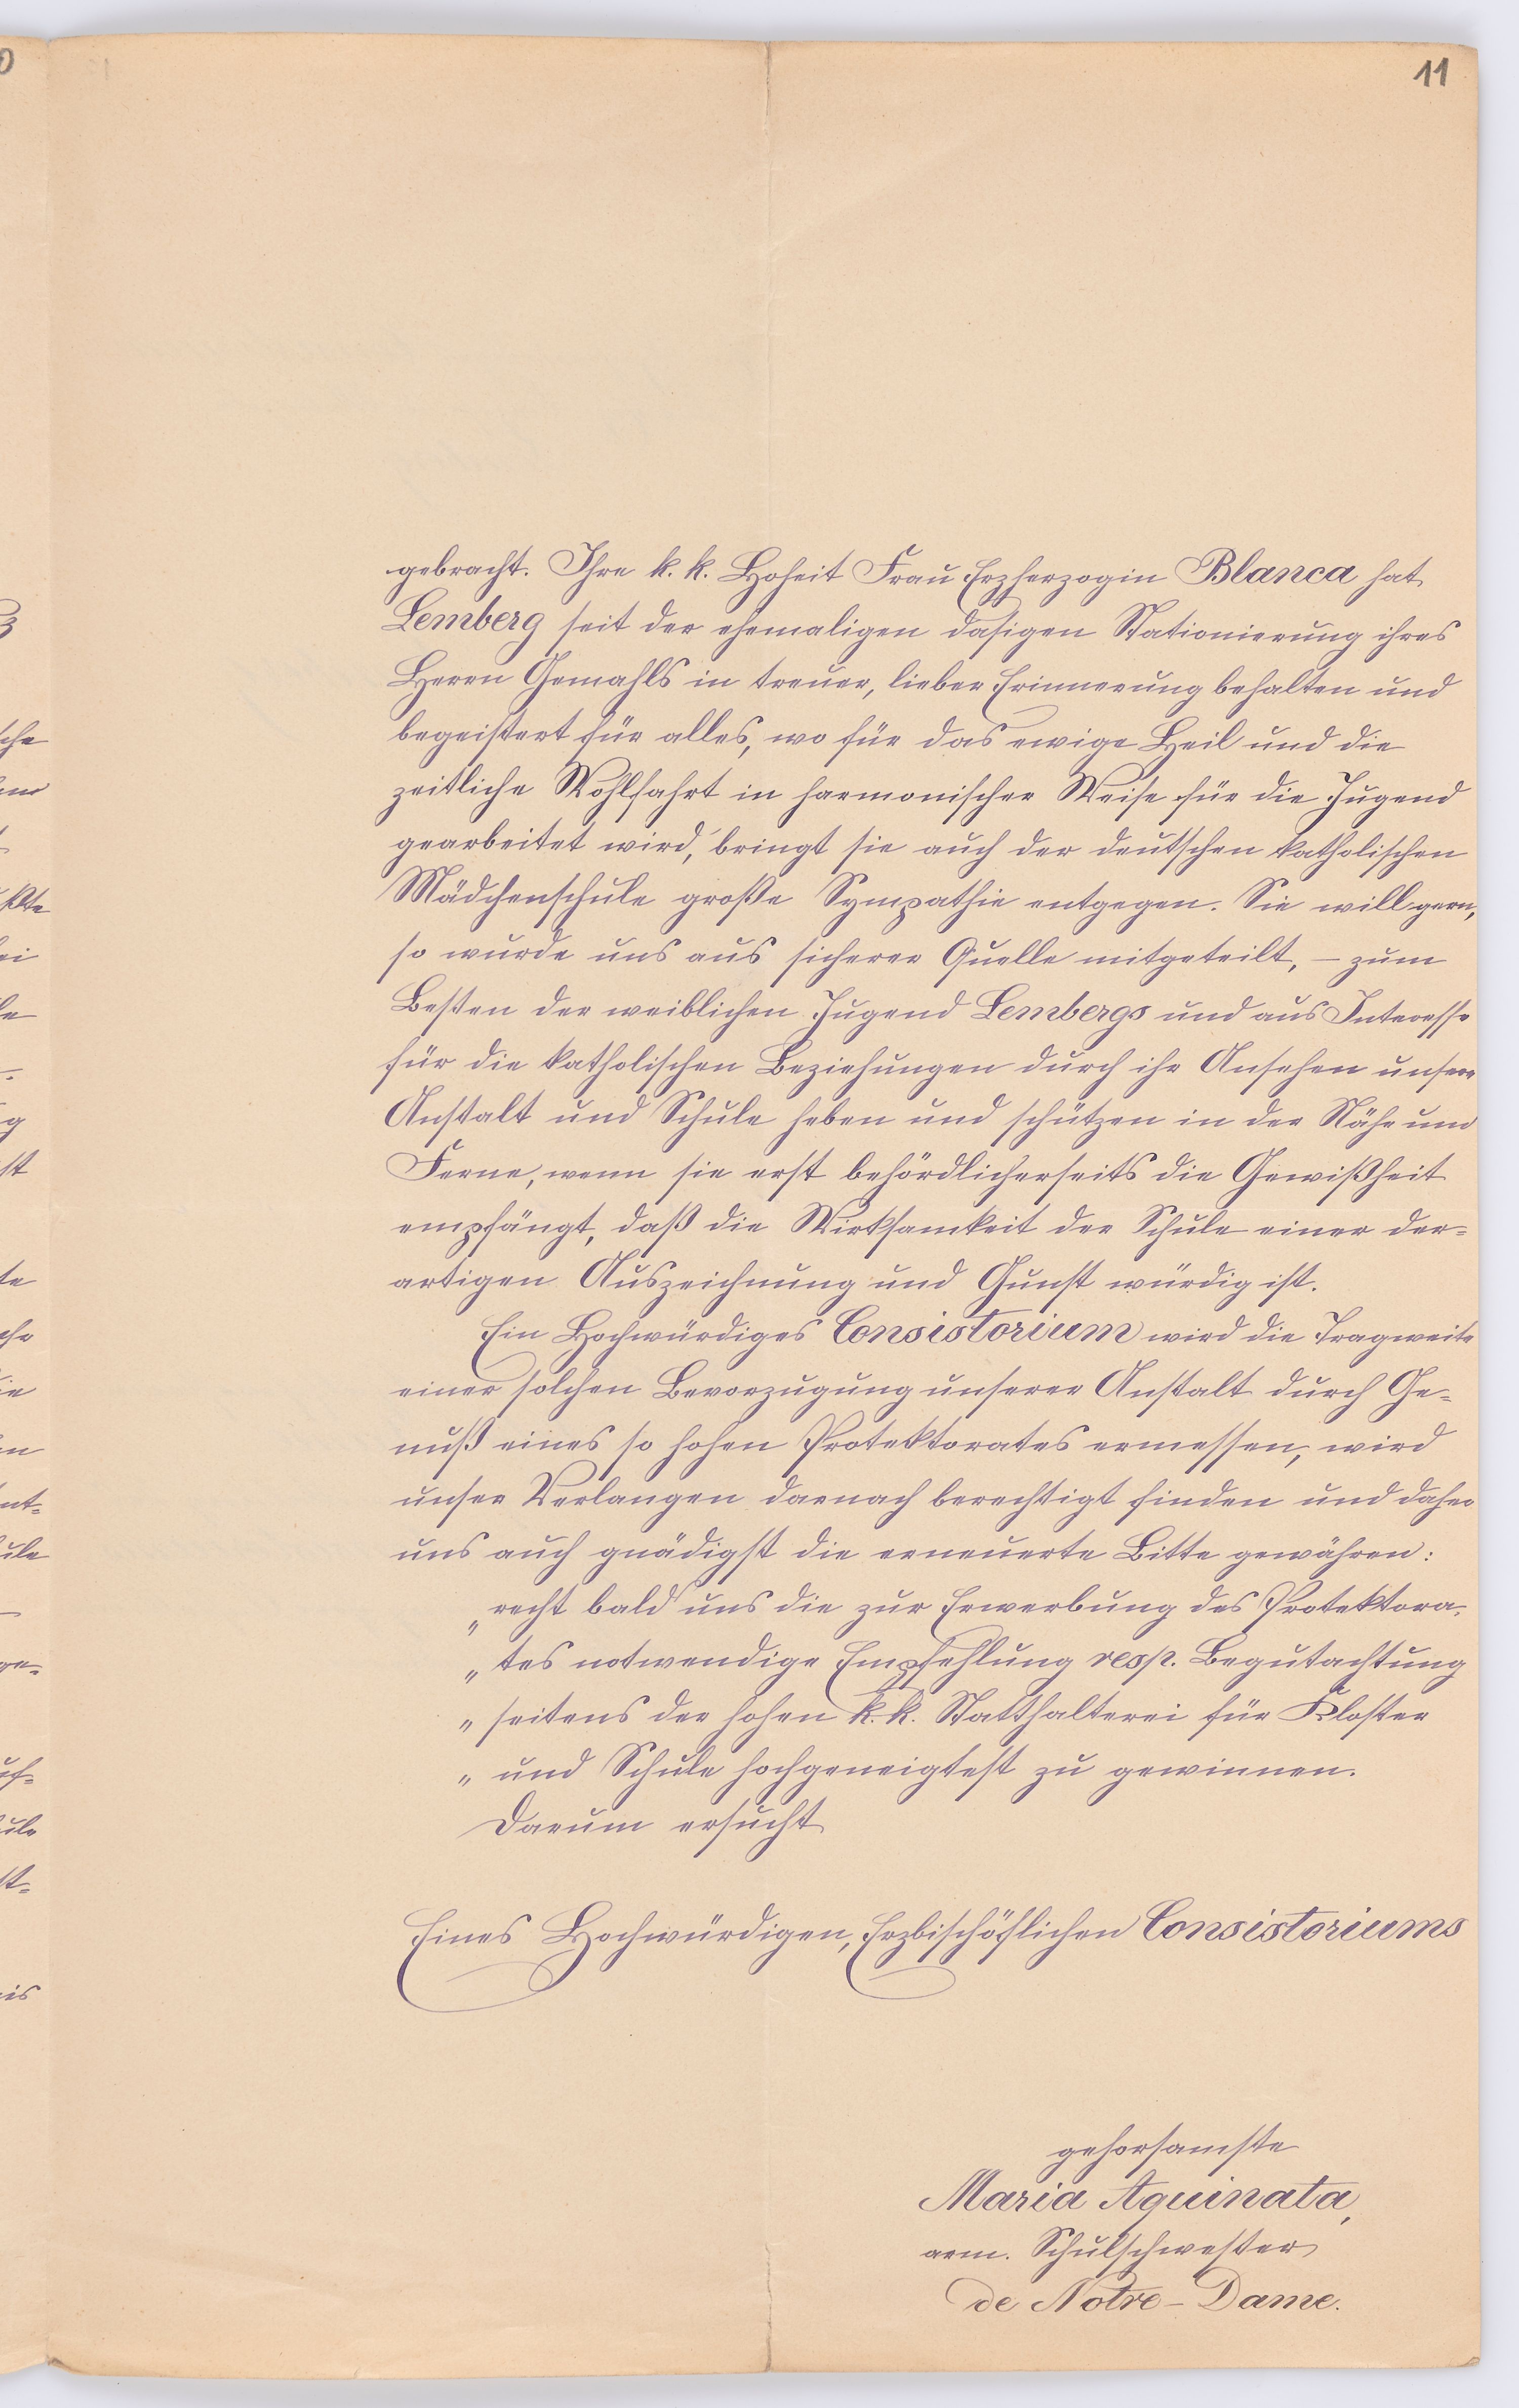 11
gebracht. Ihre k. k. Hoheit Frau Erzherzogin Blanca hat
Lemberg seit der ehemaligen dasigen Stationierung ihres
Herrn Gemahls in treuer, lieber Erinnerung behalten und
begeistert für alles, wo für das ewige Heil und die
zeitliche Wohlfahrt in harmonischer Weise für die Jugend
gearbeitet wird, bringt sie auch der deutschen katholischen
Mädchenschule große Sympathie entgegen. Sie will gern,
so wurde uns aus sicherer Quelle mitgeteilt, – zum
Besten der weiblichen Jugend Lembergs und aus Interesse
für die katholischen Beziehungen durch ihr Ansehen unsere
Anstalt und Schule heben und schützen in der Nähe und
Ferne, wenn sie erst behördlicherseits die Gewißheit
empfängt, daß die Wirksamkeit der Schule einer der=
artigen Auszeichnung und Gunst würdig ist.
Ein Hochwürdiges Consistorium wird die Tragweite
einer solchen Bevorzugung unserer Anstalt durch Ge=
nuß eines so hohen Protektorates ermessen, wird
unser Verlangen darnach berechtigt finden und daher
uns auch gnädigst die erneuerte Bitte gewähren:
„recht bald uns die zur Erwerbung des Protektora=
„tes notwendige Empfehlung resp. Begutachtung
„seitens der hohen k. k. Statthalterei für Kloster
„und Schule hochgeneigtest zu gewinnen.
Darum ersucht
Eines Hochwürdigen, Erzbischöflichen Consistoriums
gehorsamste
Maria Aquinata,
arm. Schulschwester
de Notre-Dame.